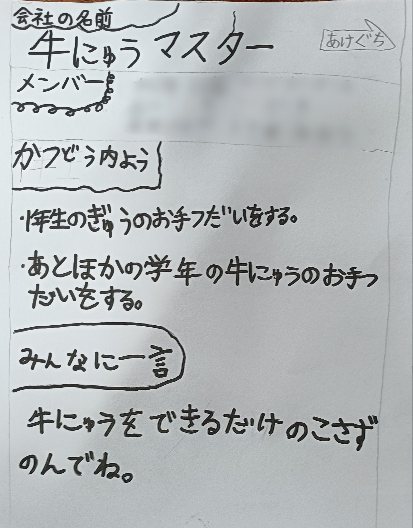 会社の名前
牛にゅうマスター
あけぐち
メンバー
かつどう内よう
・1年生のぎゅうのお手つだいをする。
・あとほかの学年の牛にゅうのお手つ
だいをする。
みんなに一言
牛にゅうをできるだけのこさず
のんでね。